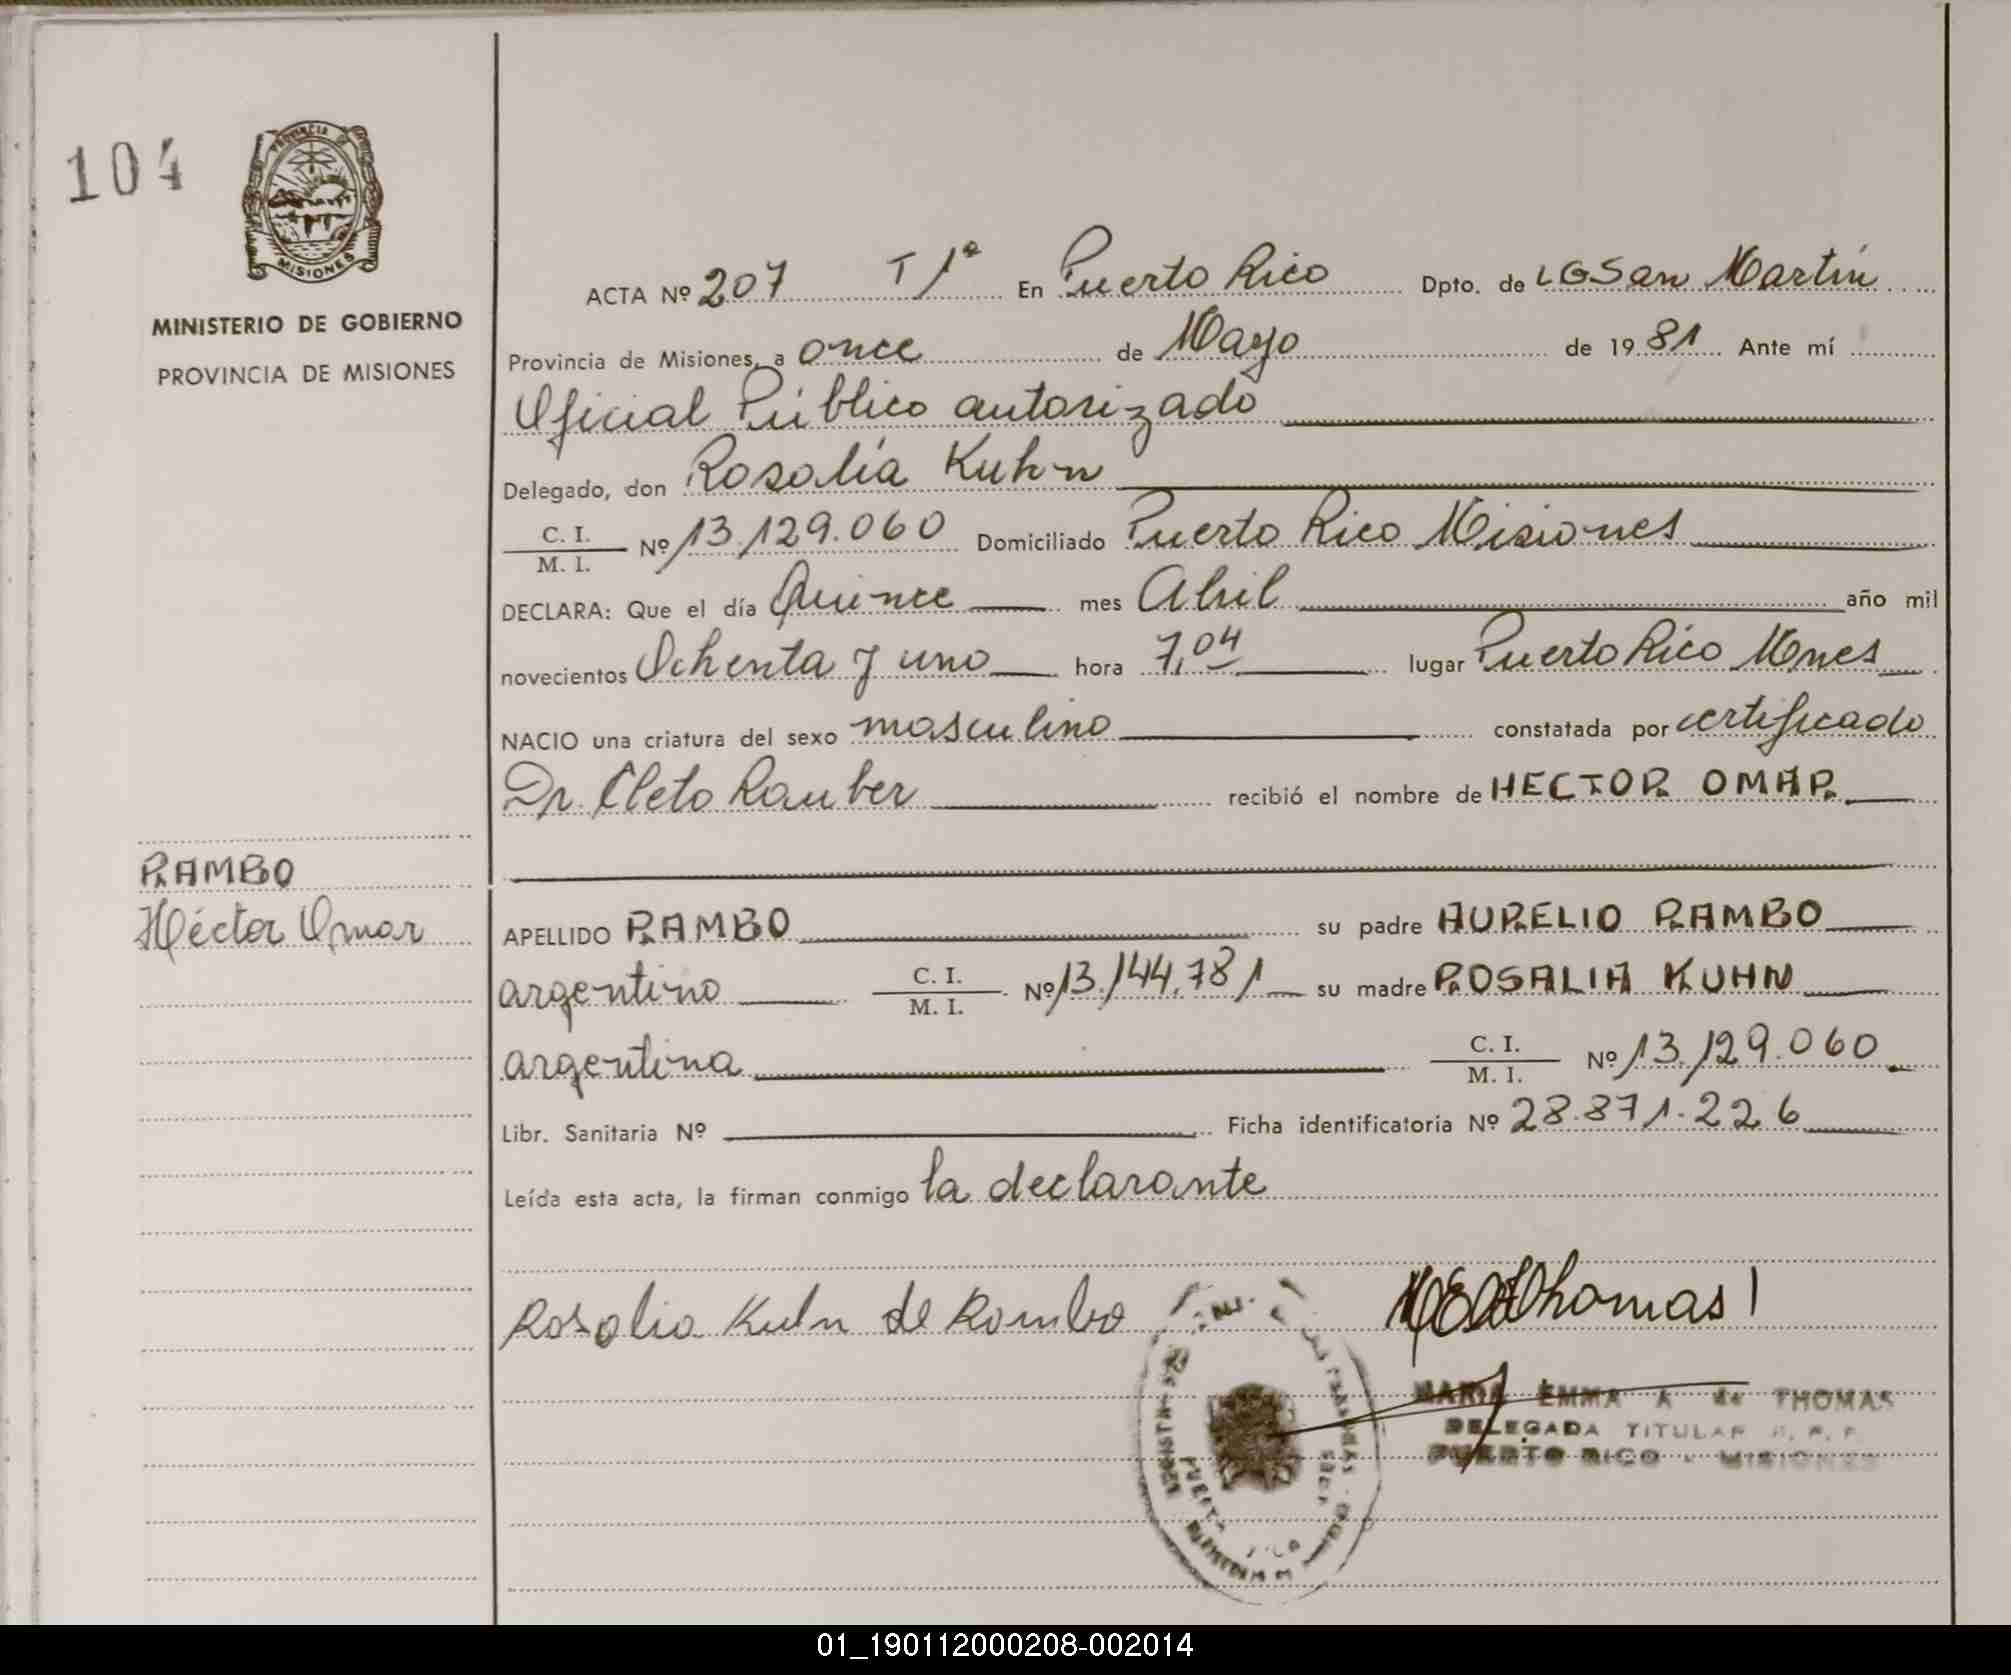 104
PROVINCIA DE
MISIONES
MINISTERIO DE GOBIERNO
PROVINCIA DE MISIONES
ACTA Nº 207 T 1º En Puerto Rico Dpto. de LGSan Martín
Provincia de Misiones, a once de Mayo de 1981 Ante mí
Oficial Público autorizado
Delegado, don Rosalía Kuhn
C. I.
M. I.
Nº 13.129.060 Domiciliado Puerto Rico Misiones
DECLARA: Que el día Quince mes Abril año mil
novecientos Ochenta y uno hora 7,04 lugar Puerto Rico Mnes
NACIO una criatura del sexo masculino constatada por certificado
Dr. Cleto Rauber recibió el nombre de HECTOR OMAR
RAMBO
Héctor Omar
APELLIDO RAMBO su padre AURELIO RAMBO
argentino C. I.
M. I.
Nº 13.144.781 su madre ROSALIA KUHN
argentina C. I.
M. I.
Nº 13.129.060
Libr. Sanitaria Nº Ficha identificatoria Nº 28.871.226
Leída esta acta, la firman conmigo la declarante
Rosalia Kuhn de Rambo Thomas
MARIA EMMA A de THOMAS
DELEGADA TITULAR
PUERTO RICO - MISIONES
01_190112000208-002014